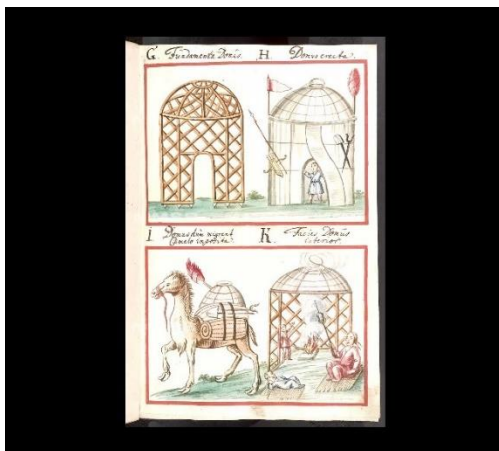 G. Fundamenta Domûs. H. Domus erecta.
I Domus dum migrant
Camelo imposita.
K. Facies Domûs
interior.